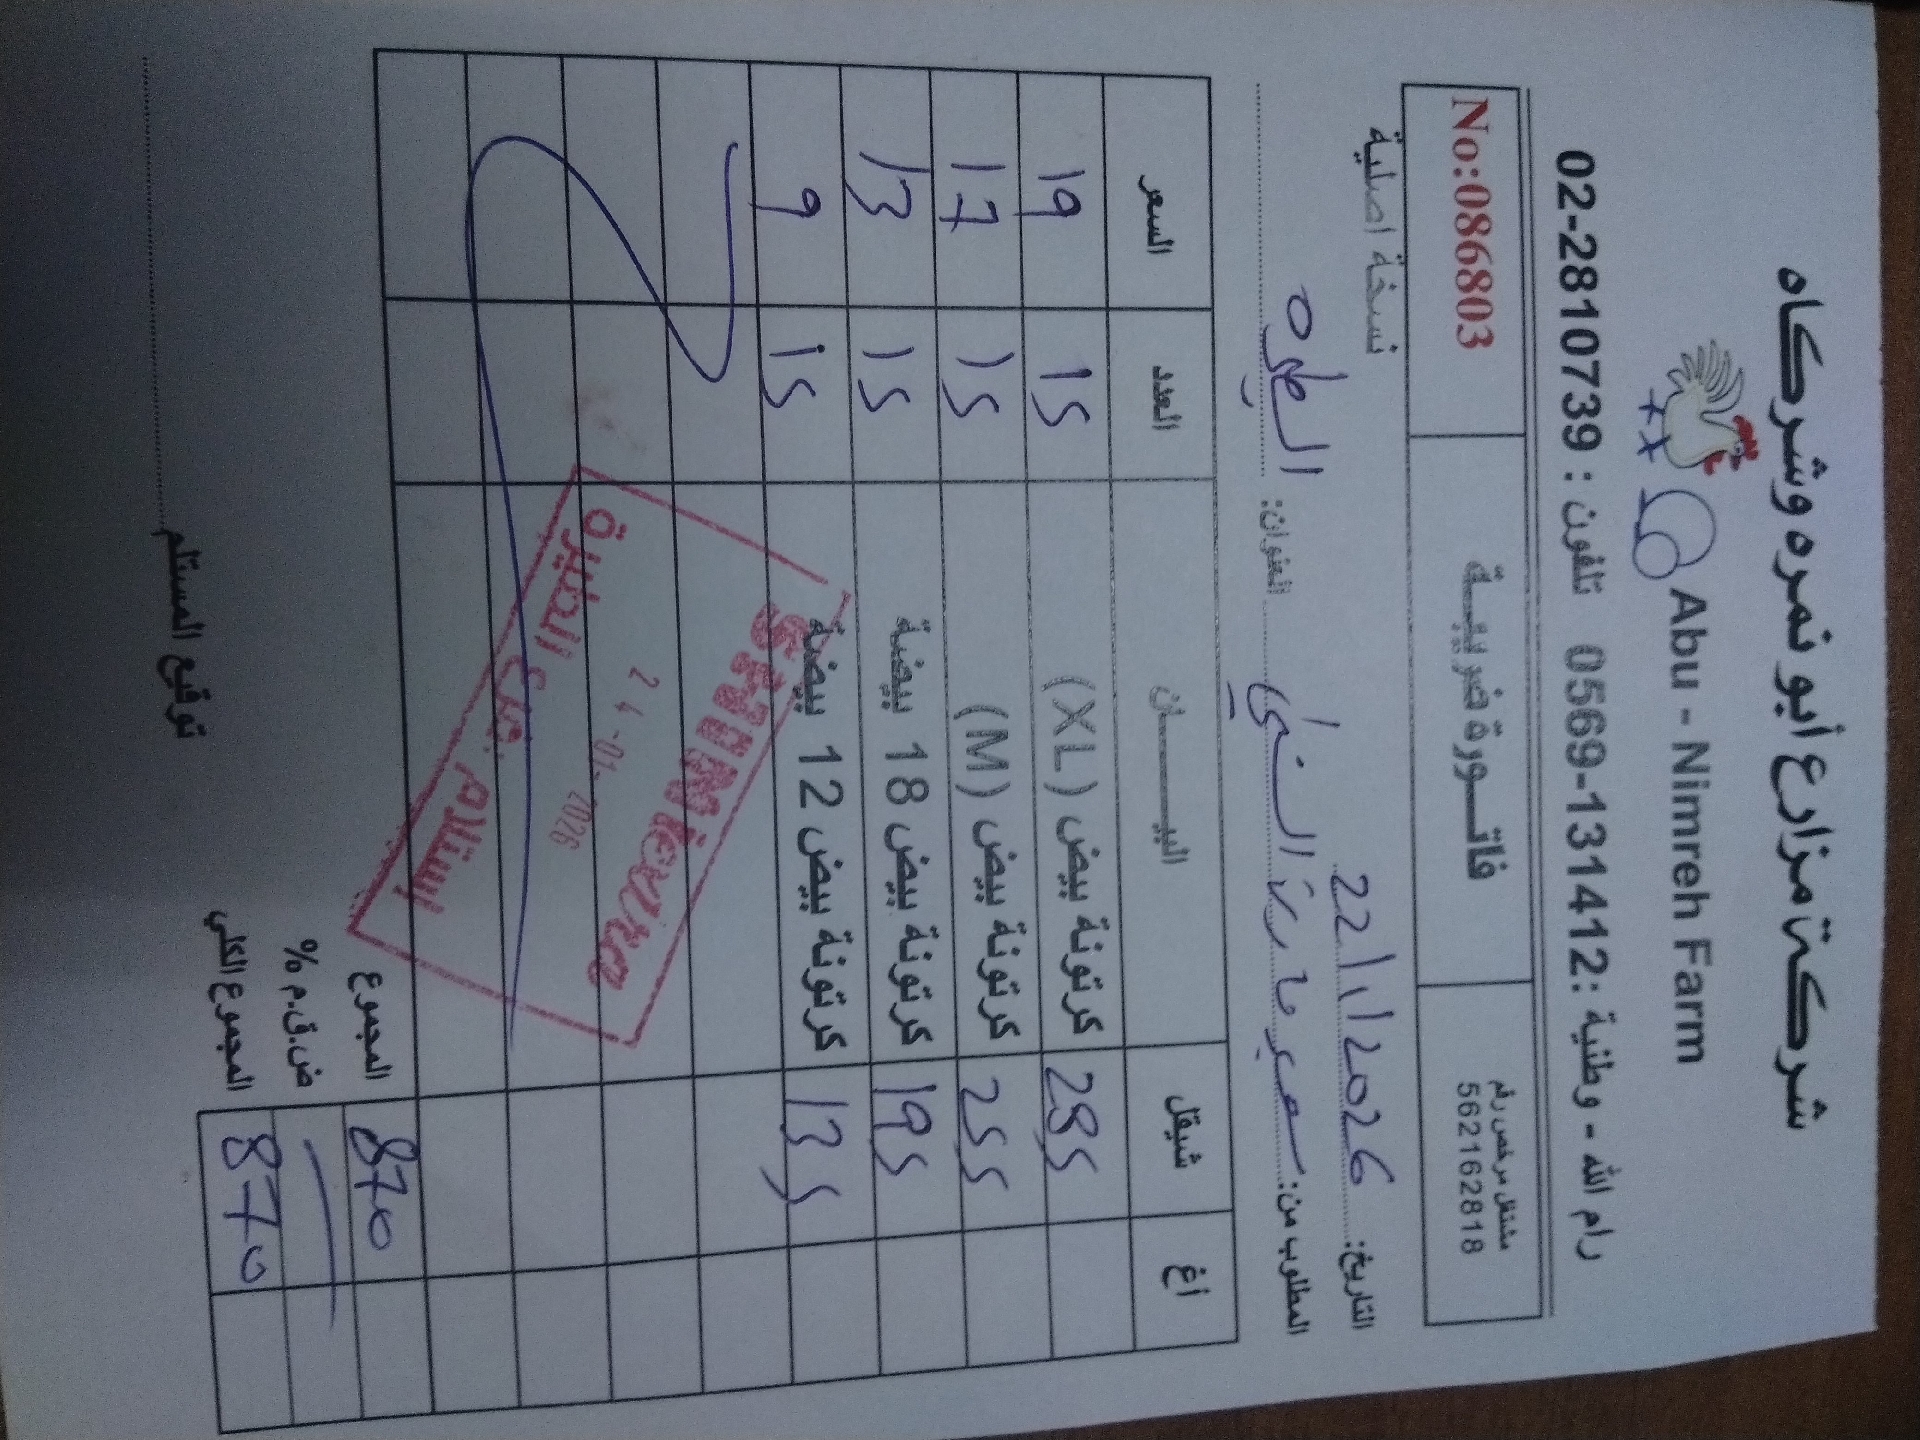 شركة مزارع أبو نمره وشركاه
Abu - Nimreh Farm
رام الله - وطنية : 0569-131412 تلفون : 02-2810739
مشتغل مرخص رقم 562162818
فاتـــورة ضريبيـــة
No:086803
نسخة اصلية
التاريخ: 22/1/2026
المطلوب من: سوبر ماركت العنوان: الطيره
شيقل أغ البيــــــان العدد السعر
285 كرتونة بيض (XL) 15 19
255 كرتونة بيض (M) 15 17
195 كرتونة بيض 18 بيضة 15 13
135 كرتونة بيض 12 بيضة 15 9
24-01-2026
استلام فرع الطيرة
المجموع 870
ض.ق.م %
المجموع الكلي 870
توقيع المستلم